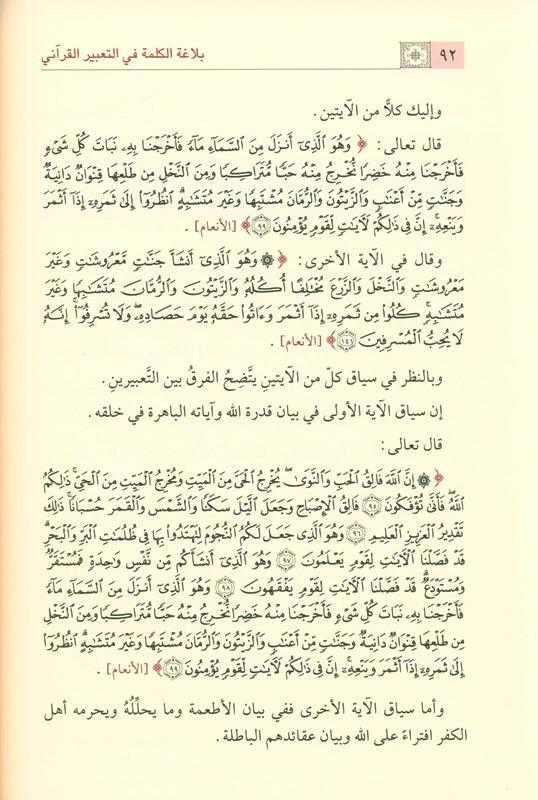 ٩٢ بلاغة الكلمة في التعبير القرآني
وإليك كلاًّ من الآيتين .
قال تعالى: ﴿ وَهُوَ ٱلَّذِىٓ أَنزَلَ مِنَ ٱلسَّمَآءِ مَآءً فَأَخْرَجْنَا بِهِۦ نَبَاتَ كُلِّ شَىْءٍ
فَأَخْرَجْنَا مِنْهُ خَضِرًا نُّخْرِجُ مِنْهُ حَبًّا مُّتَرَاكِبًا وَمِنَ ٱلنَّخْلِ مِن طَلْعِهَا قِنْوَانٌ دَانِيَةٌ
وَجَنَّٰتٍ مِّنْ أَعْنَابٍ وَٱلزَّيْتُونَ وَٱلرُّمَّانَ مُشْتَبِهًا وَغَيْرَ مُتَشَٰبِهٍ ۗ ٱنظُرُوٓا۟ إِلَىٰ ثَمَرِهِۦٓ إِذَآ أَثْمَرَ
وَيَنْعِهِۦٓ ۚ إِنَّ فِى ذَٰلِكُمْ لَءَايَٰتٍ لِّقَوْمٍ يُؤْمِنُونَ ٩٩ ﴾ [الأنعام] .
وقال في الآية الأخرى: ﴿ ۞ وَهُوَ ٱلَّذِىٓ أَنشَأَ جَنَّٰتٍ مَّعْرُوشَٰتٍ وَغَيْرَ
مَعْرُوشَٰتٍ وَٱلنَّخْلَ وَٱلزَّرْعَ مُخْتَلِفًا أُكُلُهُۥ وَٱلزَّيْتُونَ وَٱلرُّمَّانَ مُتَشَٰبِهًا وَغَيْرَ
مُتَشَٰبِهٍ ۚ كُلُوا۟ مِن ثَمَرِهِۦٓ إِذَآ أَثْمَرَ وَءَاتُوا۟ حَقَّهُۥ يَوْمَ حَصَادِهِۦ ۖ وَلَا تُسْرِفُوٓا۟ ۚ إِنَّهُۥ
لَا يُحِبُّ ٱلْمُسْرِفِينَ ١٤١ ﴾ [الأنعام] .
وبالنظر في سياق كلّ من الآيتينِ يتَّضِحُ الفرقُ بين التَّعبيرينِ .
إن سياق الآية الأولى في بيان قدرة الله وآياته الباهرة في خلقه .
قال تعالى:
﴿ ۞ إِنَّ ٱللَّهَ فَالِقُ ٱلْحَبِّ وَٱلنَّوَىٰ ۖ يُخْرِجُ ٱلْحَىَّ مِنَ ٱلْمَيِّتِ وَمُخْرِجُ ٱلْمَيِّتِ مِنَ ٱلْحَىِّ ۚ ذَٰلِكُمُ
ٱللَّهُ ۖ فَأَنَّىٰ تُؤْفَكُونَ ٩٥ فَالِقُ ٱلْإِصْبَاحِ وَجَعَلَ ٱلَّيْلَ سَكَنًا وَٱلشَّمْسَ وَٱلْقَمَرَ حُسْبَانًا ۚ ذَٰلِكَ
تَقْدِيرُ ٱلْعَزِيزِ ٱلْعَلِيمِ ٩٦ وَهُوَ ٱلَّذِى جَعَلَ لَكُمُ ٱلنُّجُومَ لِتَهْتَدُوا۟ بِهَا فِى ظُلُمَٰتِ ٱلْبَرِّ وَٱلْبَحْرِ ۗ
قَدْ فَصَّلْنَا ٱلْءَايَٰتِ لِقَوْمٍ يَعْلَمُونَ ٩٧ وَهُوَ ٱلَّذِىٓ أَنشَأَكُم مِّن نَّفْسٍ وَٰحِدَةٍ فَمُسْتَقَرٌّ
وَمُسْتَوْدَعٌ ۗ قَدْ فَصَّلْنَا ٱلْءَايَٰتِ لِقَوْمٍ يَفْقَهُونَ ٩٨ وَهُوَ ٱلَّذِىٓ أَنزَلَ مِنَ ٱلسَّمَآءِ مَآءً
فَأَخْرَجْنَا بِهِۦ نَبَاتَ كُلِّ شَىْءٍ فَأَخْرَجْنَا مِنْهُ خَضِرًا نُّخْرِجُ مِنْهُ حَبًّا مُّتَرَاكِبًا وَمِنَ ٱلنَّخْلِ
مِن طَلْعِهَا قِنْوَانٌ دَانِيَةٌ وَجَنَّٰتٍ مِّنْ أَعْنَابٍ وَٱلزَّيْتُونَ وَٱلرُّمَّانَ مُشْتَبِهًا وَغَيْرَ مُتَشَٰبِهٍ ۗ ٱنظُرُوٓا۟
إِلَىٰ ثَمَرِهِۦٓ إِذَآ أَثْمَرَ وَيَنْعِهِۦٓ ۚ إِنَّ فِى ذَٰلِكُمْ لَءَايَٰتٍ لِّقَوْمٍ يُؤْمِنُونَ ٩٩ ﴾ [الأنعام] .
وأما سياق الآية الأخرى ففي بيان الأطعمة وما يحلِّلُهُ ويحرمه أهل
الكفر افتراءً على الله وبيان عقائدهم الباطلة .